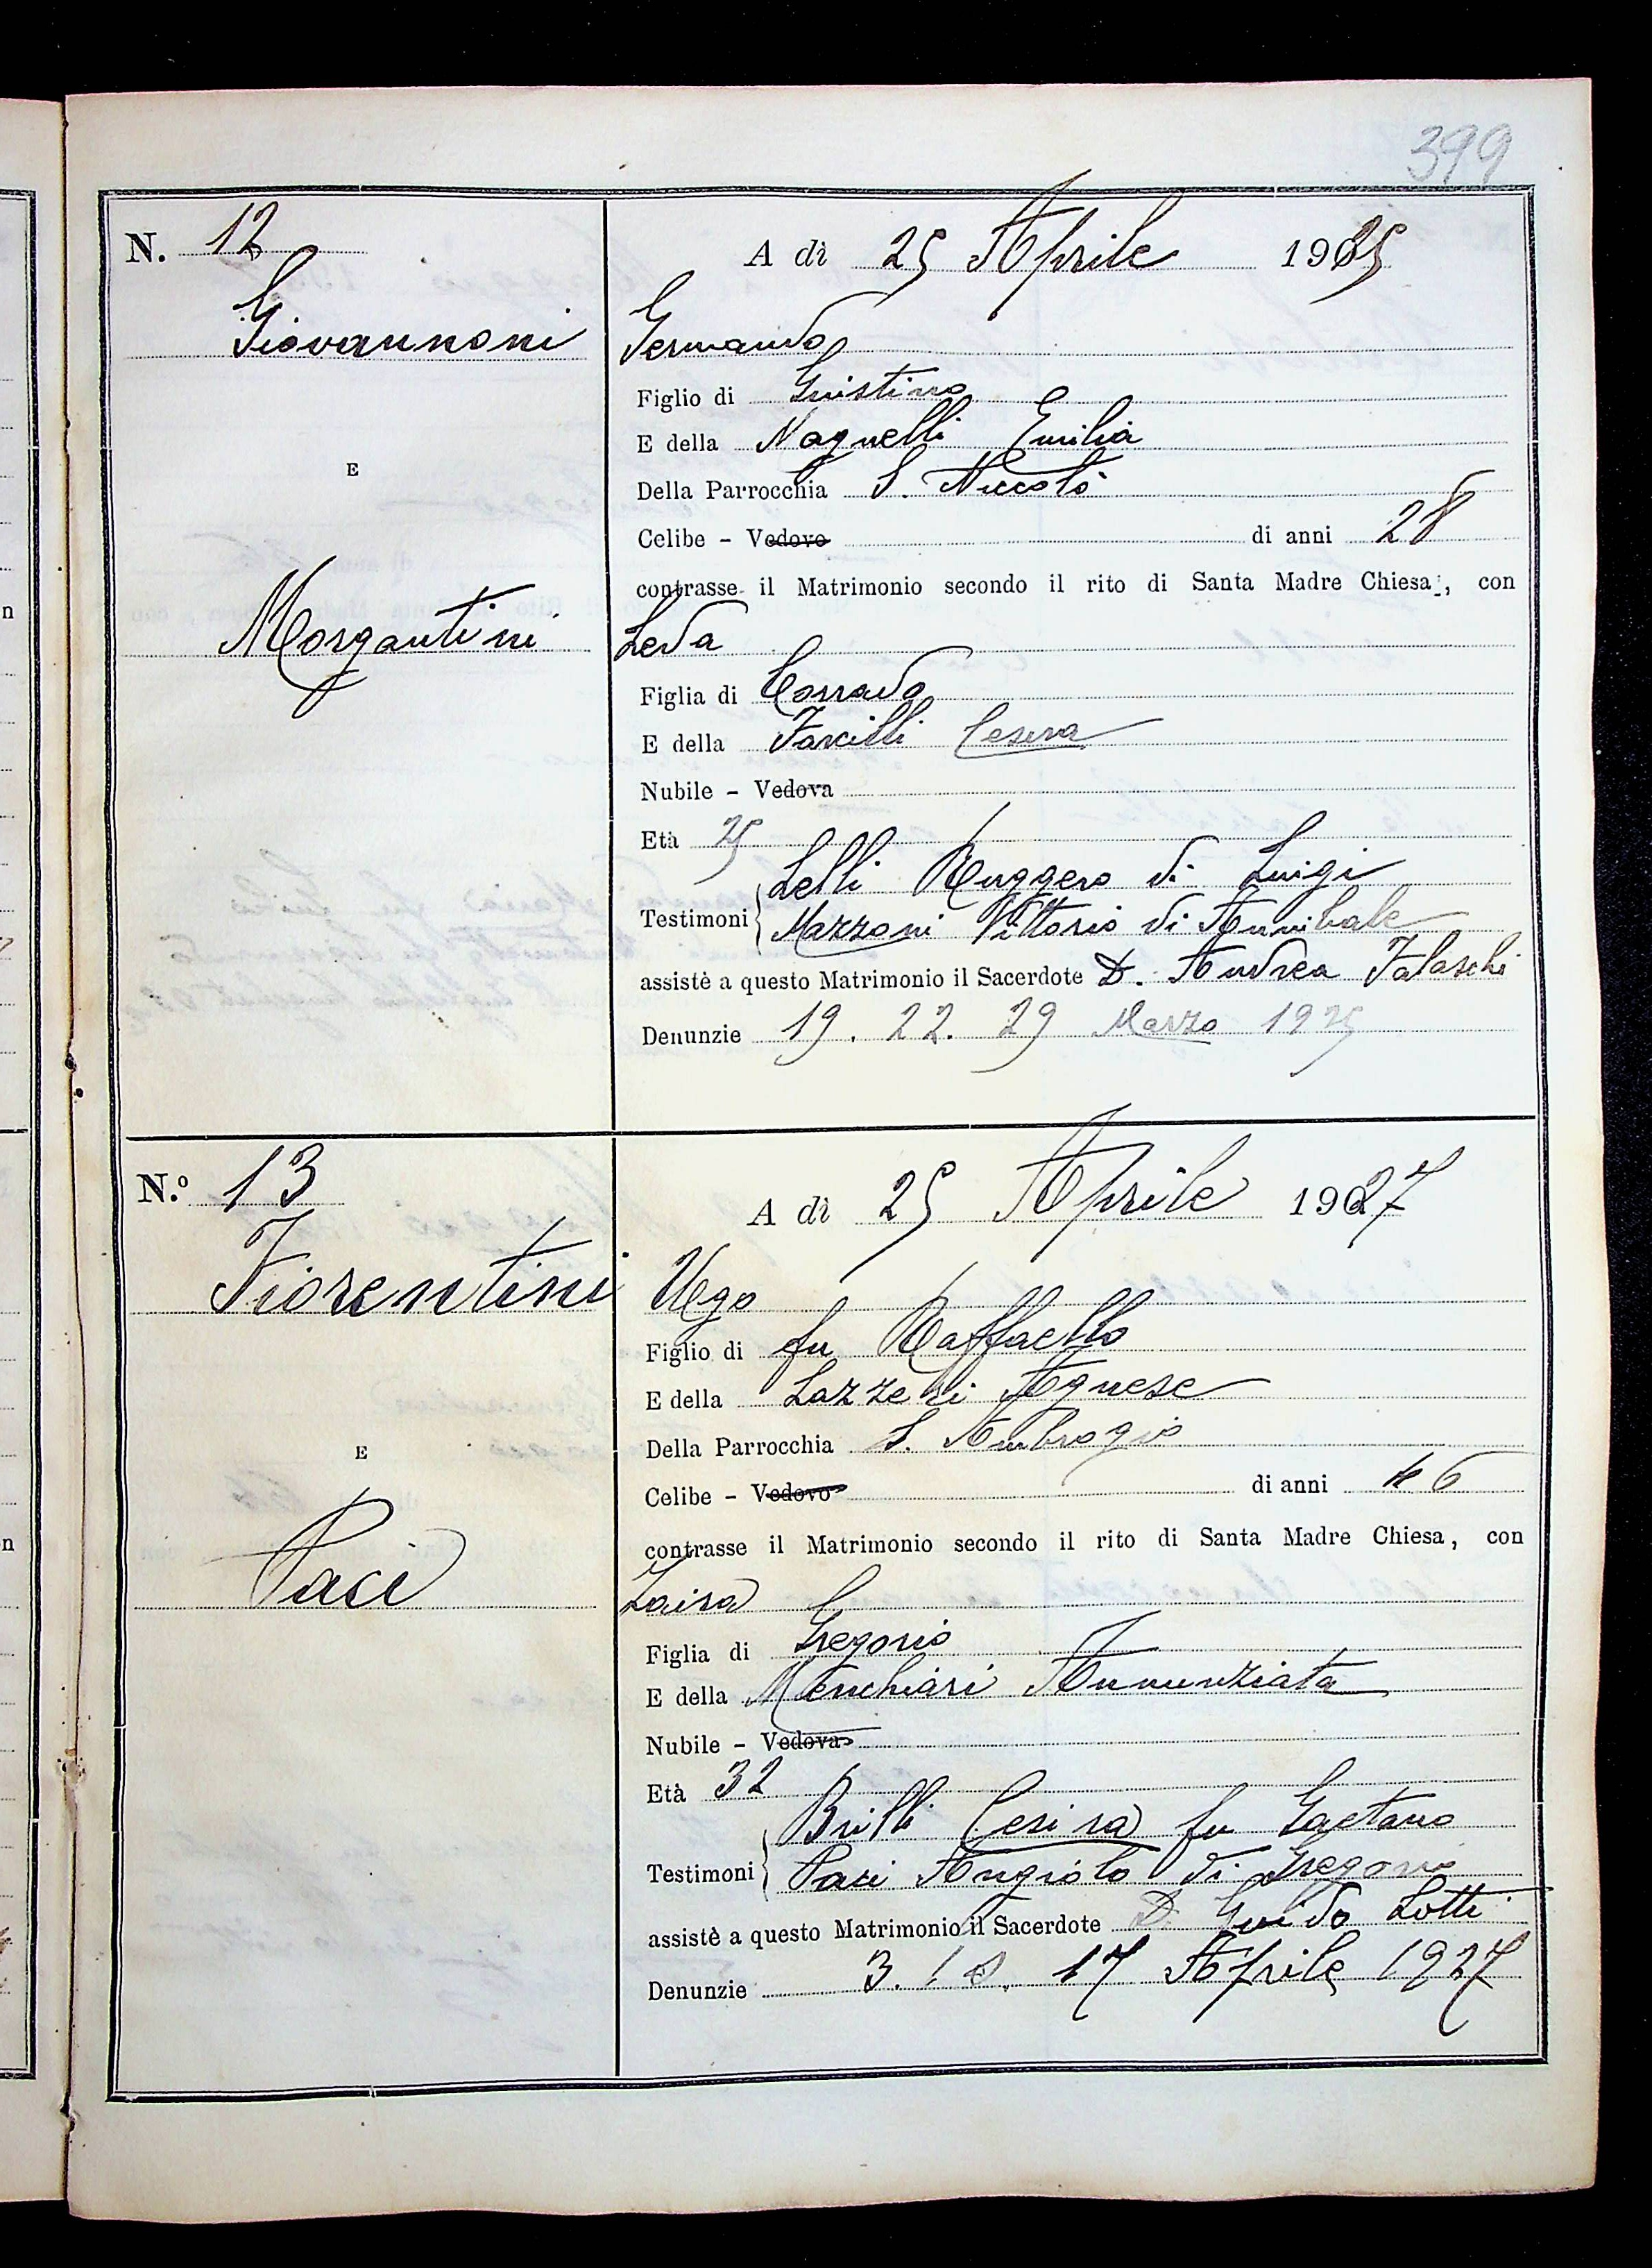 399
N. 12
A dì 25 Aprile 1925
Giovannoni
Germando
Figlio di Giustino
E della Nagnelli Emilia
E
Della Parrocchia S. Niccolò
Celibe - Vedovo di anni 28
contrasse il Matrimonio secondo il rito di Santa Madre Chiesa, con
Morgantini
Leda
Figlia di Corrado
E della Cesira
Nubile - Vedova
Età 25
Lelli Ruggero di Luigi
Testimoni
Mazzoni Vittorio di Annibale
assistè a questo Matrimonio il Sacerdote D. Andrea Falaschi
Denunzie 19. 22. 29 Marzo 1925
N.º 13
A dì 25 Aprile 1927
Fiorentini
Ugo
Figlio di fu Raffaello
E della Lazzeri Agnese
Della Parrocchia S. Ambrogio
E
Celibe - Vedovo di anni 46
contrasse il Matrimonio secondo il rito di Santa Madre Chiesa, con
Paci
Zaira
Figlia di Gregorio
E della Menchiari Annunziata
Nubile - Vedova
Età 32
Brilli Cesira fu Gaetano
Testimoni
Paci Angiolo di Gregorio
assistè a questo Matrimonio il Sacerdote D. Guido Lotti
Denunzie 3. 10. 17 Aprile 1927